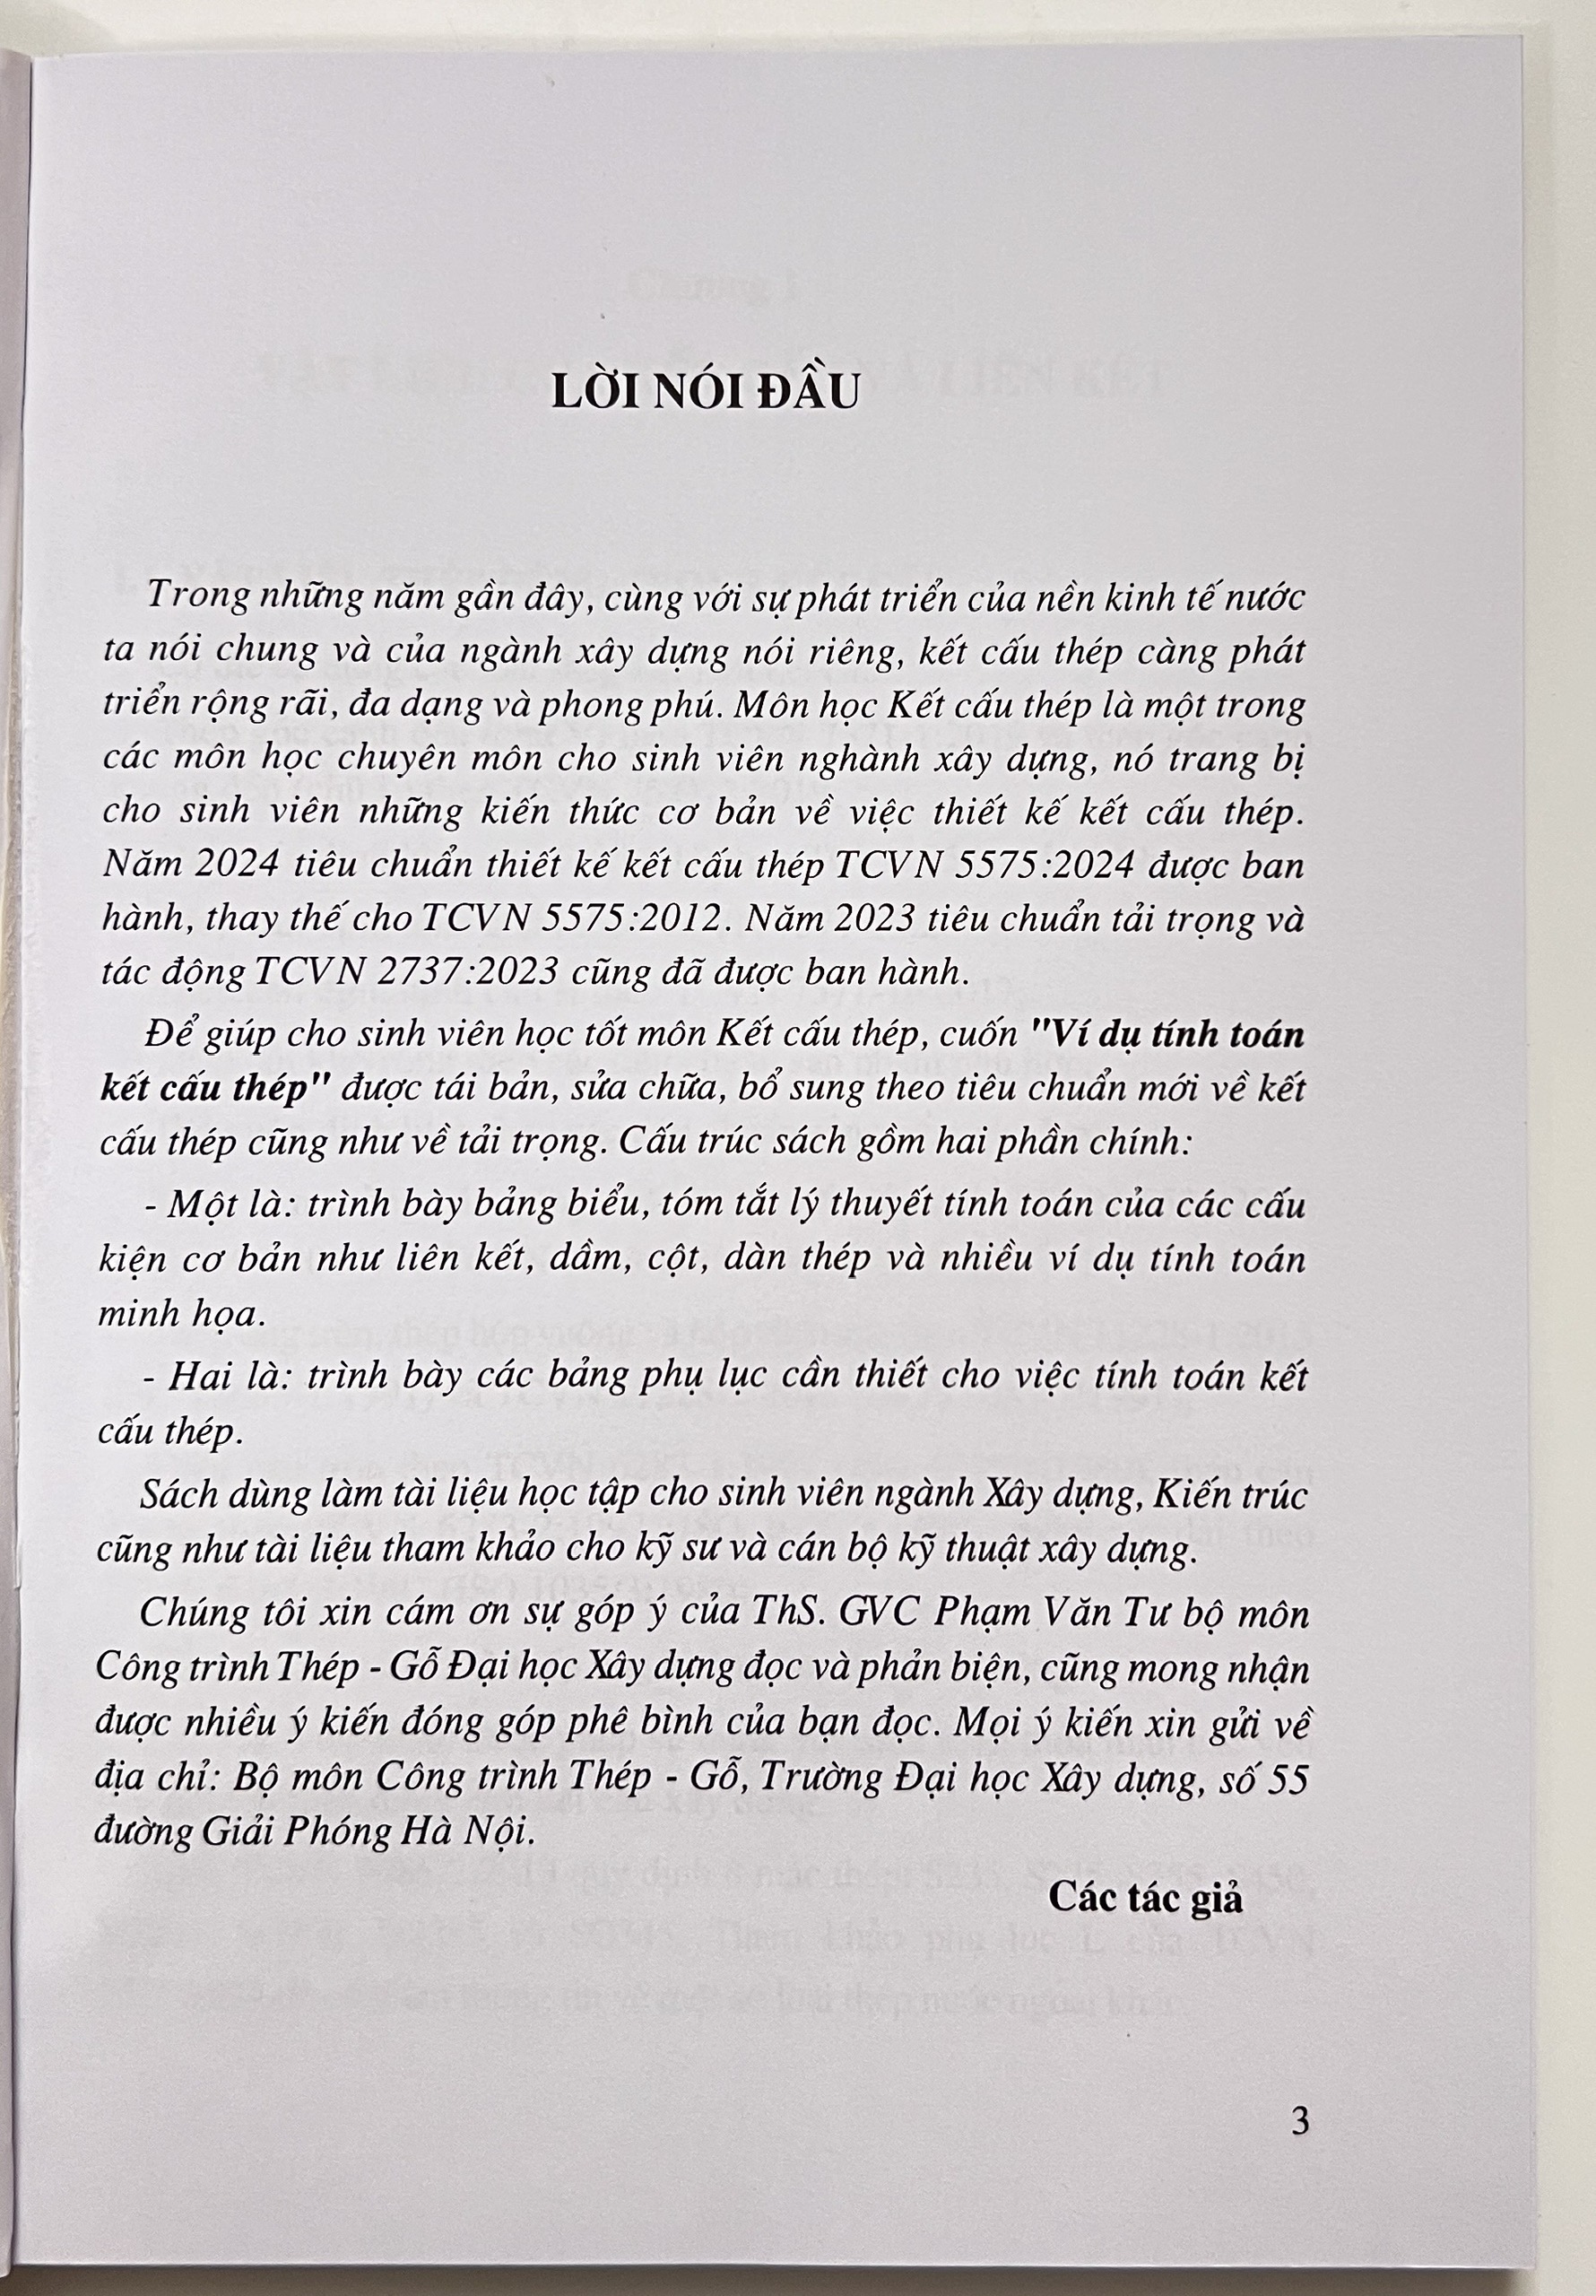 LỜI NÓI ĐẦU
Trong những năm gần đây, cùng với sự phát triển của nền kinh tế nước
ta nói chung và của ngành xây dựng nói riêng, kết cấu thép càng phát
triển rộng rãi, đa dạng và phong phú. Môn học Kết cấu thép là một trong
các môn học chuyên môn cho sinh viên nghành xây dựng, nó trang bị
cho sinh viên những kiến thức cơ bản về việc thiết kế kết cấu thép.
Năm 2024 tiêu chuẩn thiết kế kết cấu thép TCVN 5575:2024 được ban
hành, thay thế cho TCVN 5575:2012. Năm 2023 tiêu chuẩn tải trọng và
tác động TCVN 2737:2023 cũng đã được ban hành.
Để giúp cho sinh viên học tốt môn Kết cấu thép, cuốn "Ví dụ tính toán
kết cấu thép" được tái bản, sửa chữa, bổ sung theo tiêu chuẩn mới về kết
cấu thép cũng như về tải trọng. Cấu trúc sách gồm hai phần chính:
- Một là: trình bày bảng biểu, tóm tắt lý thuyết tính toán của các cấu
kiện cơ bản như liên kết, dầm, cột, dàn thép và nhiều ví dụ tính toán
minh họa.
- Hai là: trình bày các bảng phụ lục cần thiết cho việc tính toán kết
cấu thép.
Sách dùng làm tài liệu học tập cho sinh viên ngành Xây dựng, Kiến trúc
cũng như tài liệu tham khảo cho kỹ sư và cán bộ kỹ thuật xây dựng.
Chúng tôi xin cám ơn sự góp ý của ThS. GVC Phạm Văn Tư bộ môn
Công trình Thép - Gỗ Đại học Xây dựng đọc và phản biện, cũng mong nhận
được nhiều ý kiến đóng góp phê bình của bạn đọc. Mọi ý kiến xin gửi về
địa chỉ: Bộ môn Công trình Thép - Gỗ, Trường Đại học Xây dựng, số 55
đường Giải Phóng Hà Nội.
Các tác giả
3